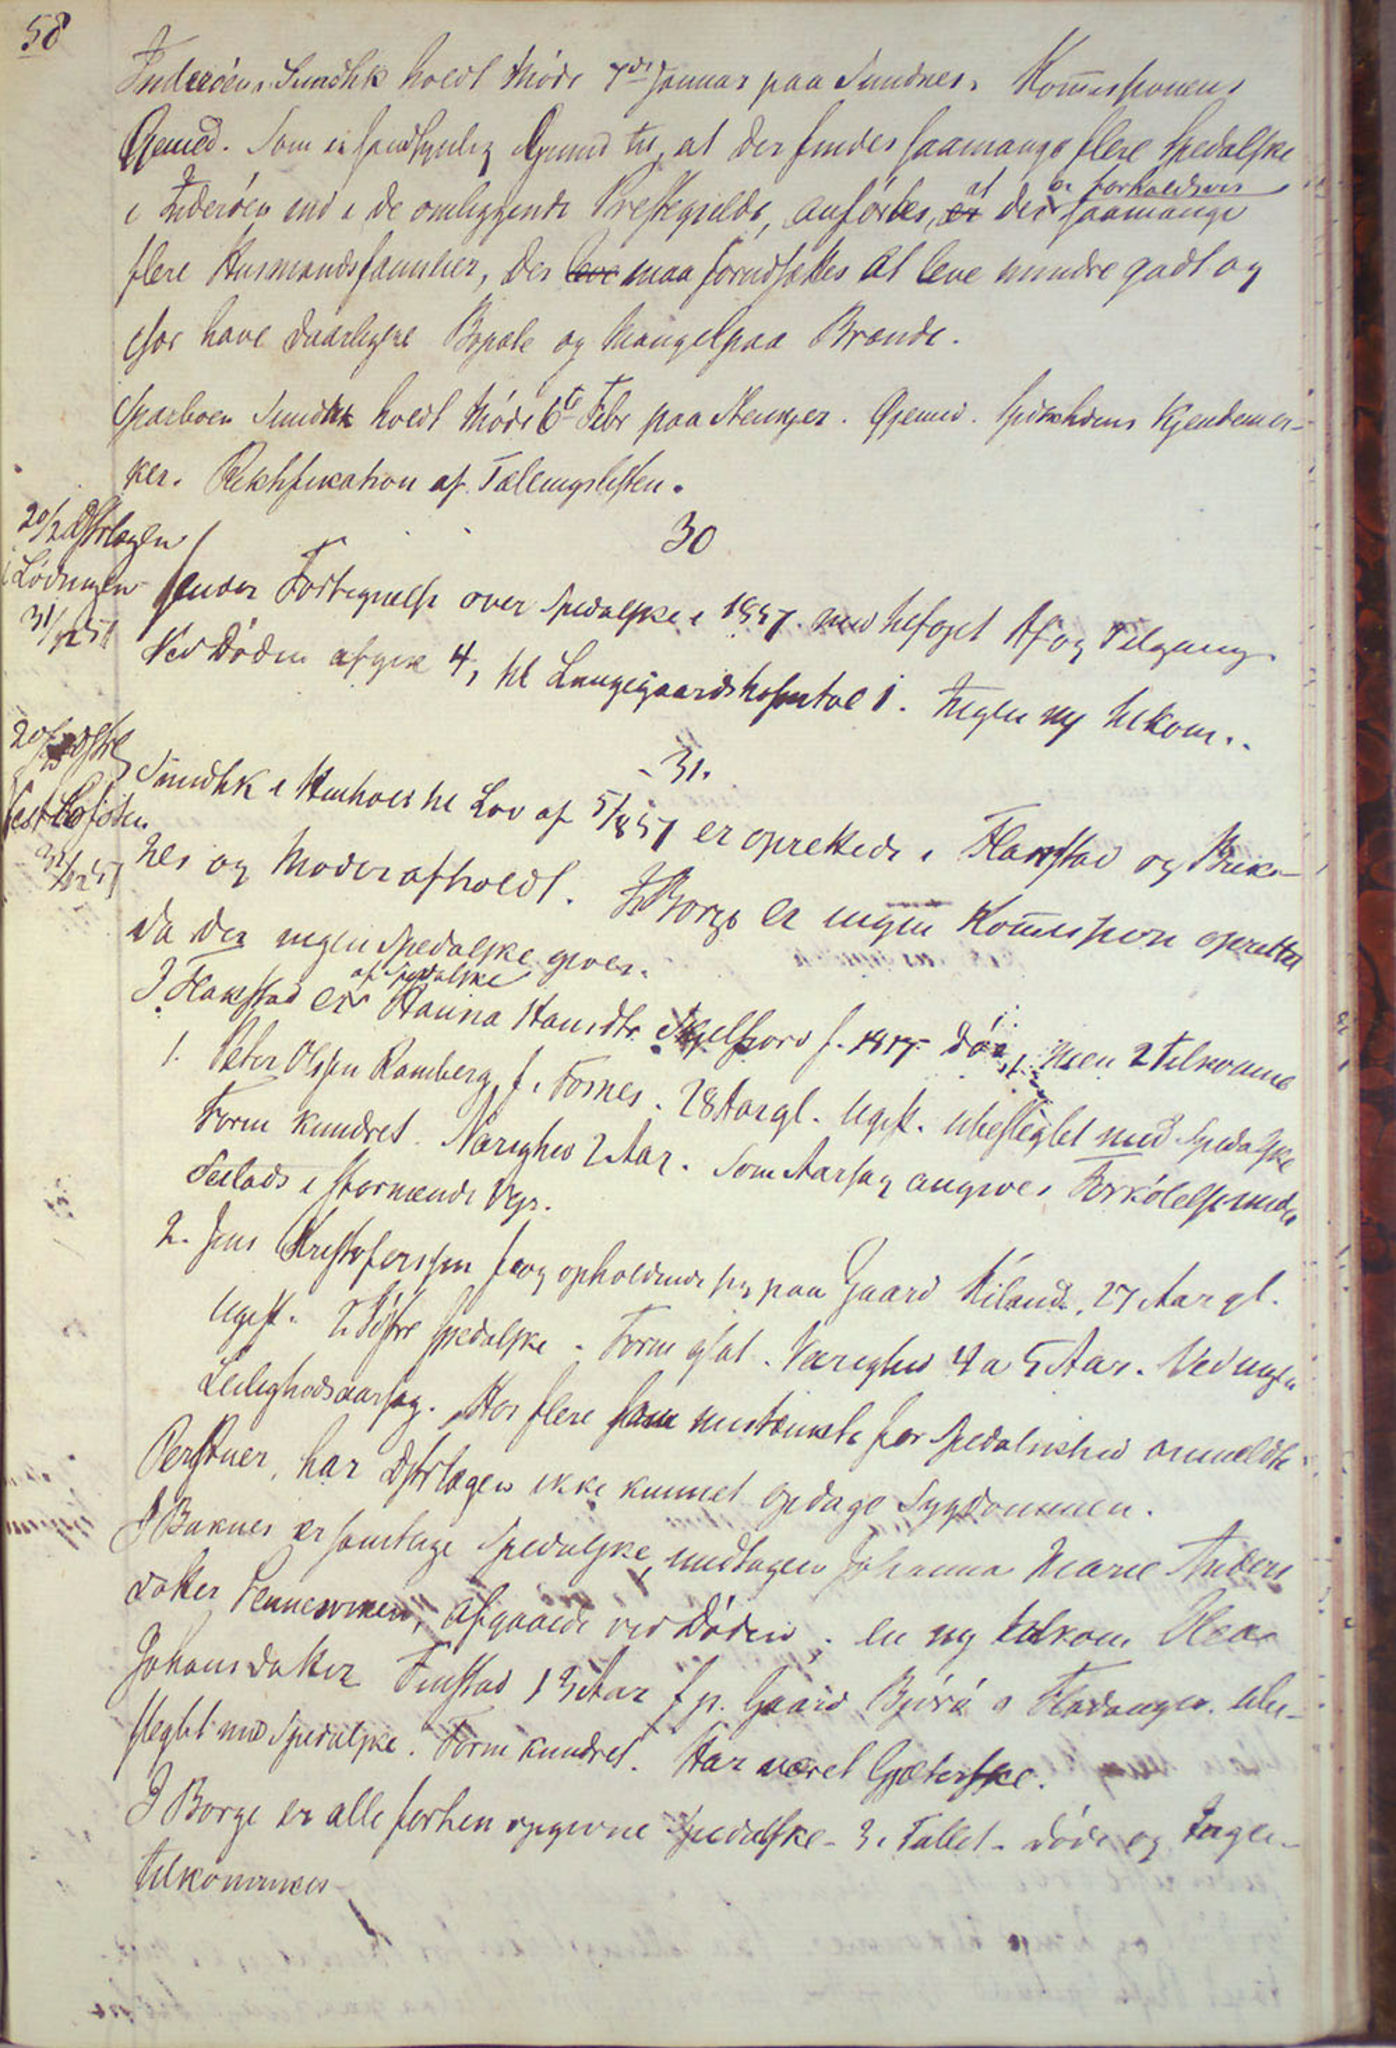 58
Inderöens Sundhk holdt Møde 7de Januar paa Sundnes. Kommissionens
Øiemed. Som en sandsynlig Grund til, at der findes saamange flere Spedalske
i Inderöen end i de omliggende Prestegjelde, anförtes, at der er forholdsvis saamange
flere Husmandsfamilier, der maa forudsættes at leve mindre godt og
have daarligere Bopæle og Mangel paa Brænde.
Sparboen Sundhk holdt Møde 6te Febr paa Stenkjer. Øiemed. Spdskhdens Kjendemær-
ker. Rektifikation af Tællingslisten.
30
20/2 Dstrlægen
i Lödingen
31/12 57
sender Fortegnelse over Spedalske i 1857 med tilføiet Af og Tilgang.
Ved Døden afgik 4, til Lungegaardshospital 1. Ingen ny tilkom.
31.
20/2 Dstrl
Vest Lofoten
31/12 57
Sundhk i Henhold til Lov af 5/8 57 er oprettede i Flakstad og Buks-
nes og Møder afholdt. I Borge er ingen Kommission oprettet
da der ingen Spedalske gives.
I Flakstad er af Spedalske Hanna Hansdtr Skjelfjord f. 1817 død, men 2 tilkomne
1. Peter Olssen Ramberg, f. i Fosnes. 28 Aar gl. Ugift. Ubeslegtet med Spedalske
Form knudret. Varighed 2 Aar. Som Aarsag angives Forkölelse under
Seilads i stormende Veir.
2. Jens Kristoferssen f og opholdende sig paa Gaard Kiland, 27 Aar gl.
Ugift. 2 Söstre spedalske. Form glat. Varighed 4 a 5 Aar. Ved ingen
Leilighedsaarsag. Hos flere som mistænkte for Spedalskhed anmeldte
Personer, har Dstrlægen ikke kunnet opdage Sygdommen.
I Buknes er samtlige Spedalske, undtagen Johanna Marie Anders
datter Pennesvinen, afgaaede ved Døden; en ny tilkom Olea
Johansdatter Finstad 13 Aar f p. Gaard Björö i Fladanger. Ube-
slegtet med Spedalske. Form knudret. Har været Gjæterske.
I Borge er alle forhen opgivne Spedalske - 3 i Tallet - døde og Ingen
tilkommen